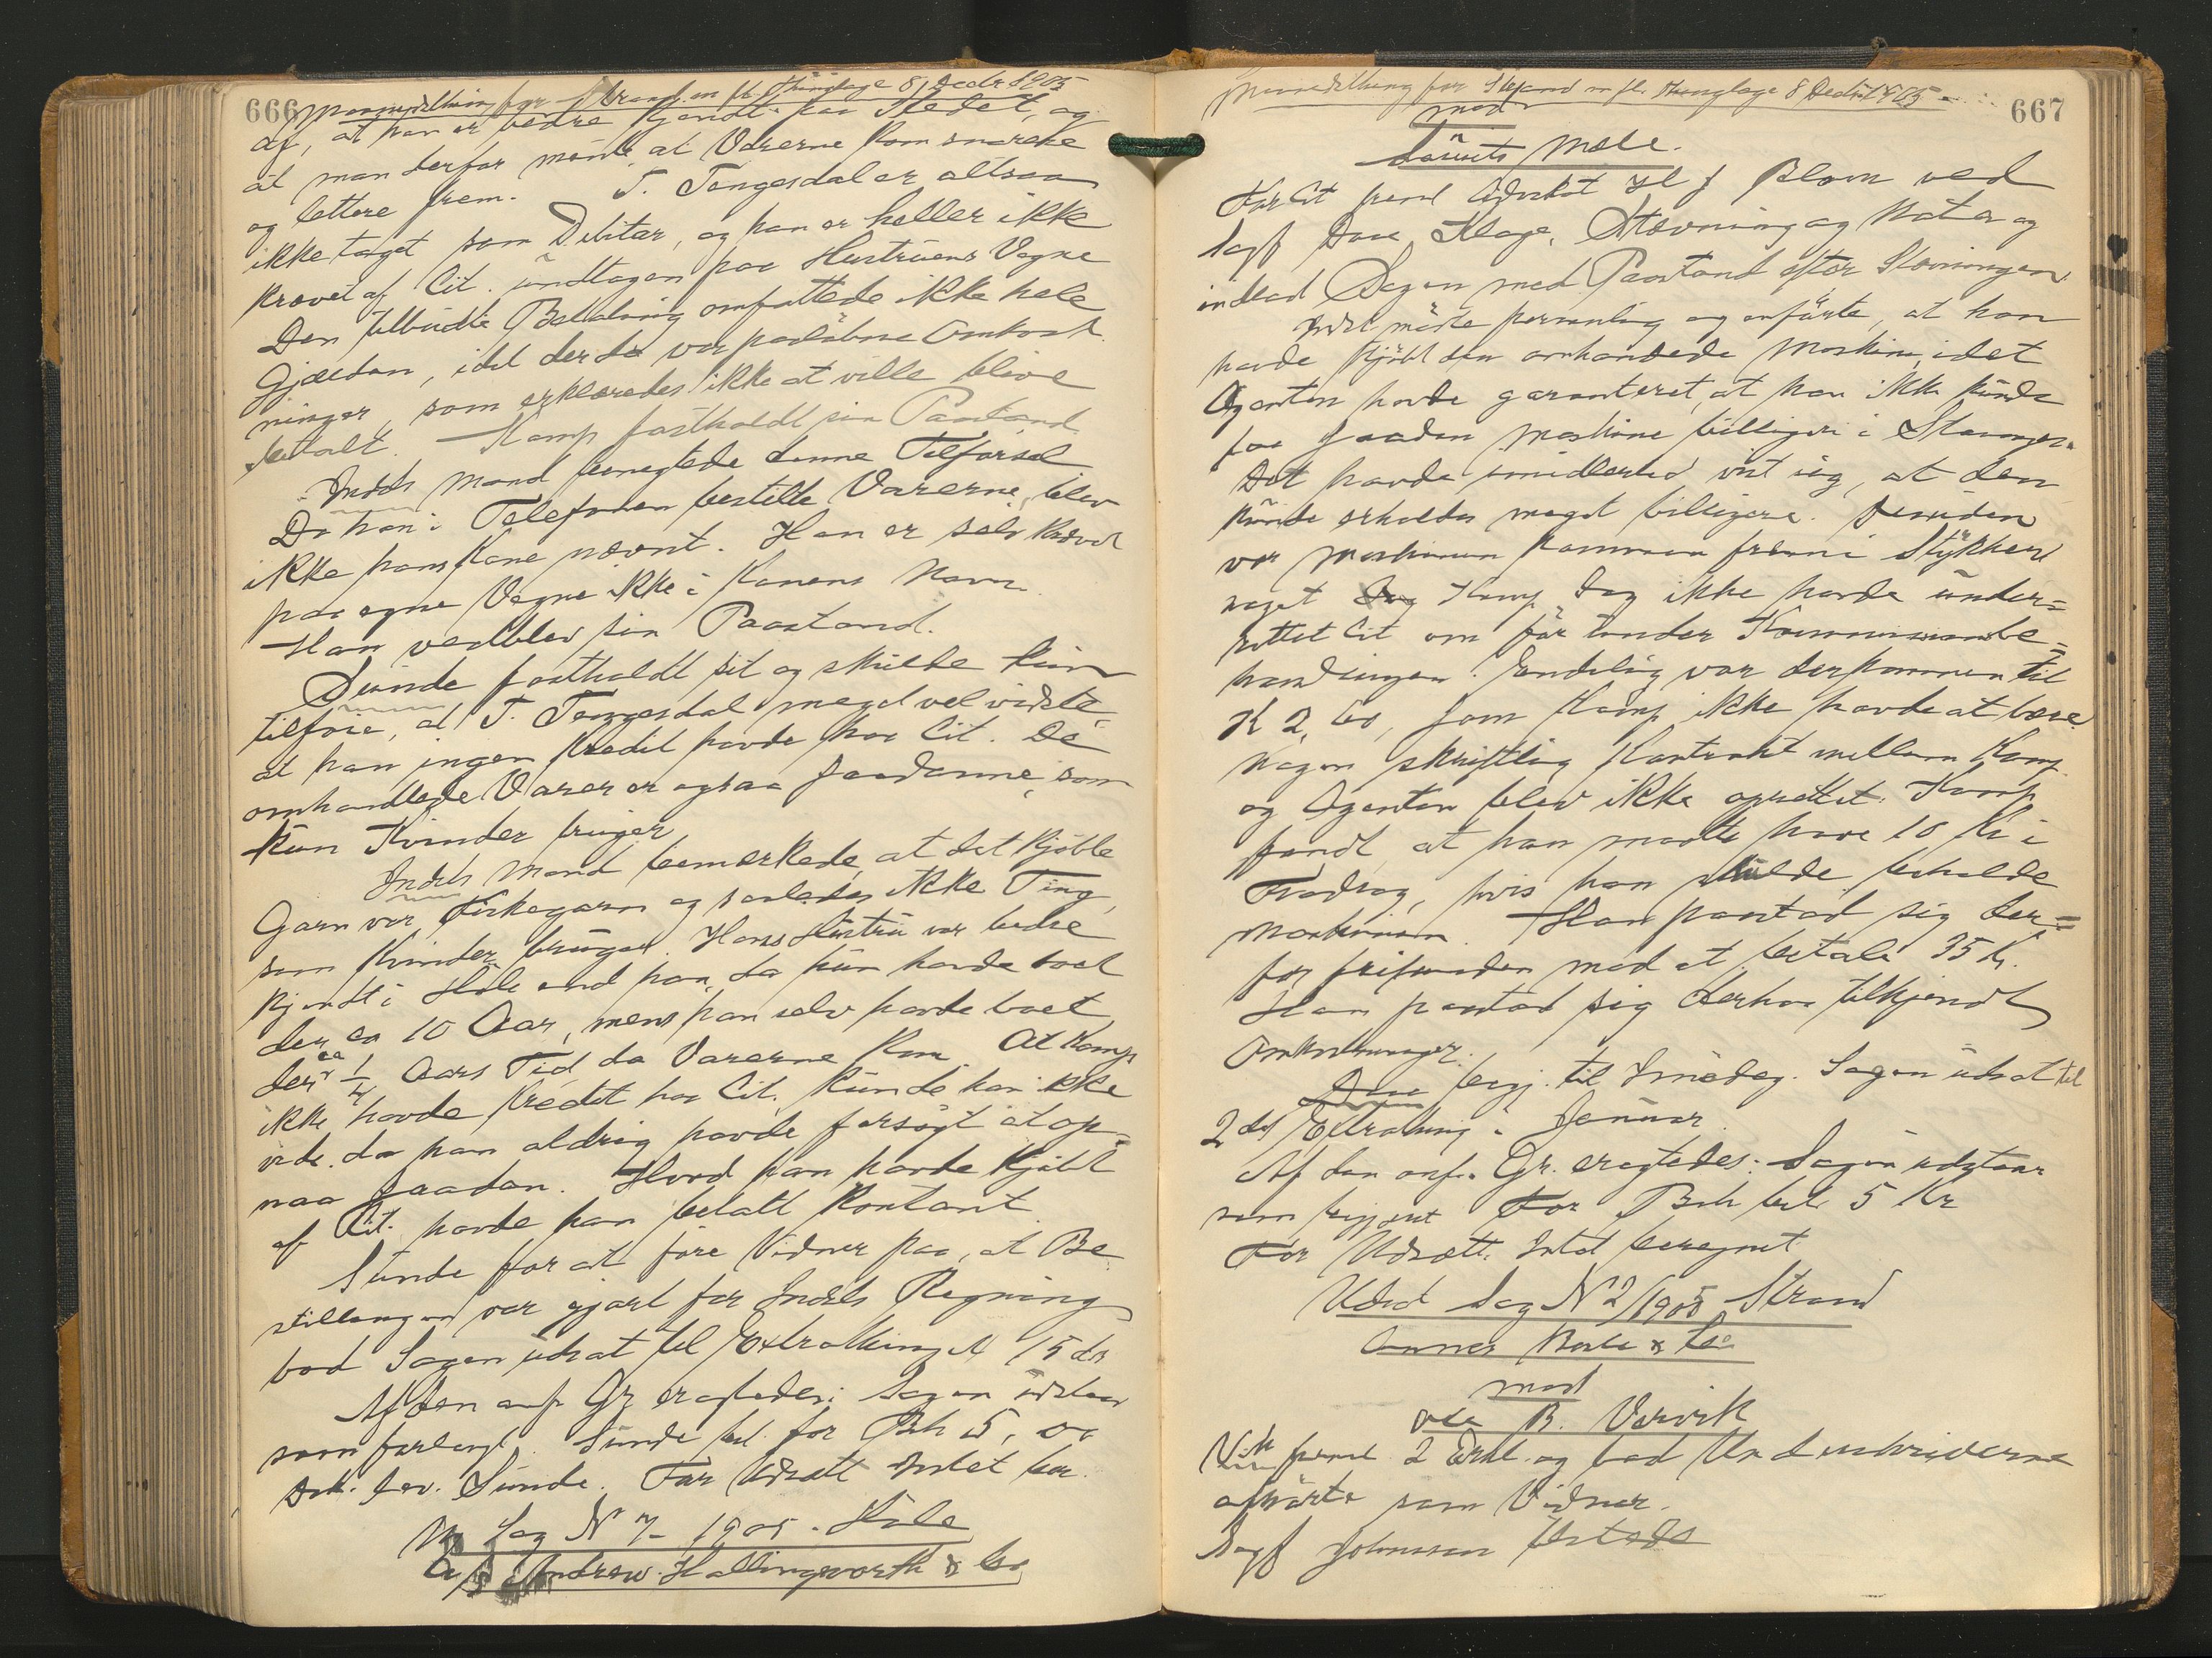 666
for Strand m fl. Thinglage 8 Decbr 1905
af, at han er bedre kjendt paa Stedet, og
at man derfor mente at Varerne kom snarere
og lettere frem. T. Tengesdal er altsaa
ikke taget som Debitor, og han er heller ikke
krævet af Cit. undtagen paa Hustruens Vegne
Den tilbudte Betaling omfattede ikke hele
Gjælden, idet der da var paaløbne Omkost
ninger, som erklæredes ikke at ville blive
betalt. Kamp fastholdt sin Paastand
Indst Mand benegtede denne Tilførsel
Da han i Telefonen bestilte Varerne, blev
ikke hans Kone nævnt. Han er selv krævet
paa egne Vegne ikke i Konens Navn
Han vedblev sin Paastand.
Sunde fastholdt sit og skulde kun
tilføie, at T. Tengesdal meget vel vidste
at han ingen Kredit havde hos Cit. De
omhandlede Varer er ogsaa saadanne, som
kun Kvinder bruger
Indst Mand bemærkede, at det kjøbte
Garn var Fiskegarn og saaledes ikke Ting,
som Kvinder bruger. Hans Hustru var bedre
kjendt i Hole end han, da hun havde boet
der ca 10 Aar, mens han selv havde boet
der ca 1/4 Aars Tid da Varerne kom. At Kamp
ikke havde Kredit hos Cit. kunde han ikke
vide, da han aldrig havde forsøgt at op-
naa saadan. Hvad han havde kjøbt
af Cit. havde han betalt kontant.
Sunde for at føre Vidner paa, at Be
stillingen var gjort for Indsts Regning
bad Sagen udsat til Extrathing N 15 ds
Af den anf Gr eragtedes: Sagen udstaar
som forlangt. Sunde bet. for Bsh 5, oo
Dok. lev. Sunde. For Udsætt Intet ber.
Ny Sag N 7 - 1905. Hole
Andrew Hallingworth & Co

for Strand m fl. Thinglage 8 Decbr 1905
667
mod
Laurits Mæle.
For Cit frem Advokat Hl J Blom ved
Sagf Dae Klage, Stævning og Nota og
indlod Sagen med Paastand efter Stævningen.
Indst mødte personlig og anførte, at han
havde kjøbt den omhandlede Maskine, idet
Agenten havde garanteret, at han ikke kunde
faa saadan Maskine billigere i Stavanger.
Det havde imidlertid vist sig, at den
kunde erholdes meget billigere. Desuden
var Maskinen kommen frem i Stykker
noget Kamp dog ikke havde under=
rettet Cit om før under Kommissionsbe=
handlingen. Endelig var der kommen til
K 2,60, som Kamp ikke havde at bære.
Nogen skriftlig Kontrakt mellem Kamp
og Agenten blev ikke oprettet. Kamp
fandt at han maatte have 10 Kr i
Fradrag, hvis han skulde beholde
Maskinen. Han paastod sig der=
for frifunden mod at betale 35 K.
Han paastod sig derhos tilkjendt
Omkostninger.
Dae begj. til Imødeg. Sagen udsat til
2det Extrathing i Januar
Af den anf. Gr. eragtedes: Sagen udstaar
som begjært For Bsh bet. 5 Kr
For Udsætt. Intet beregnet
Udsat Sag N 2/1905 Strand
& Co
mod
B. Vervik
frem 2 Erkl. og bad Underskriverne
afhørte som Vidner.
Sagf Johnsen